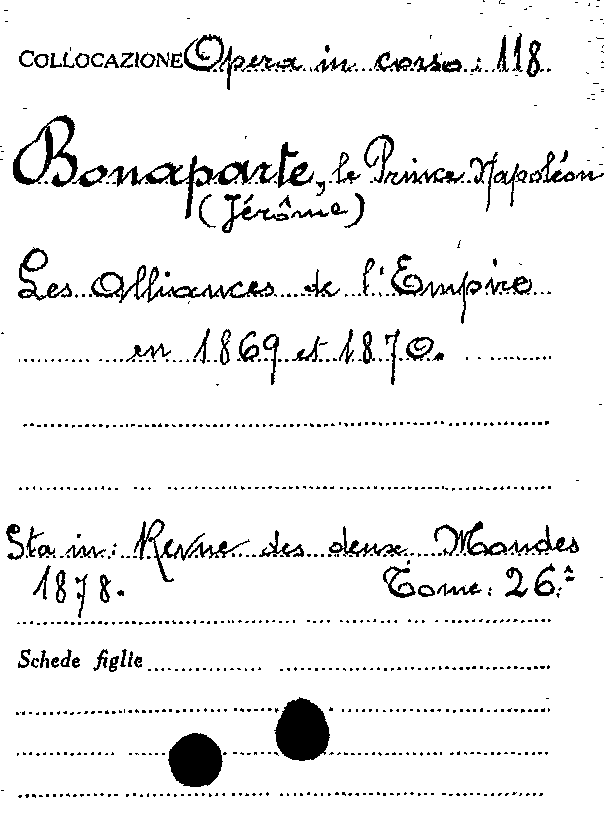 COLLOCAZIONE Opera in corso: 118.
Bonaparte, le Prince Napoléon
(Jérôme)
Les Alliances de l'Empire
en 1869 et 1870.
Sta in: Revue des deux Mondes
1878. Tome: 26.e
Schede figlie